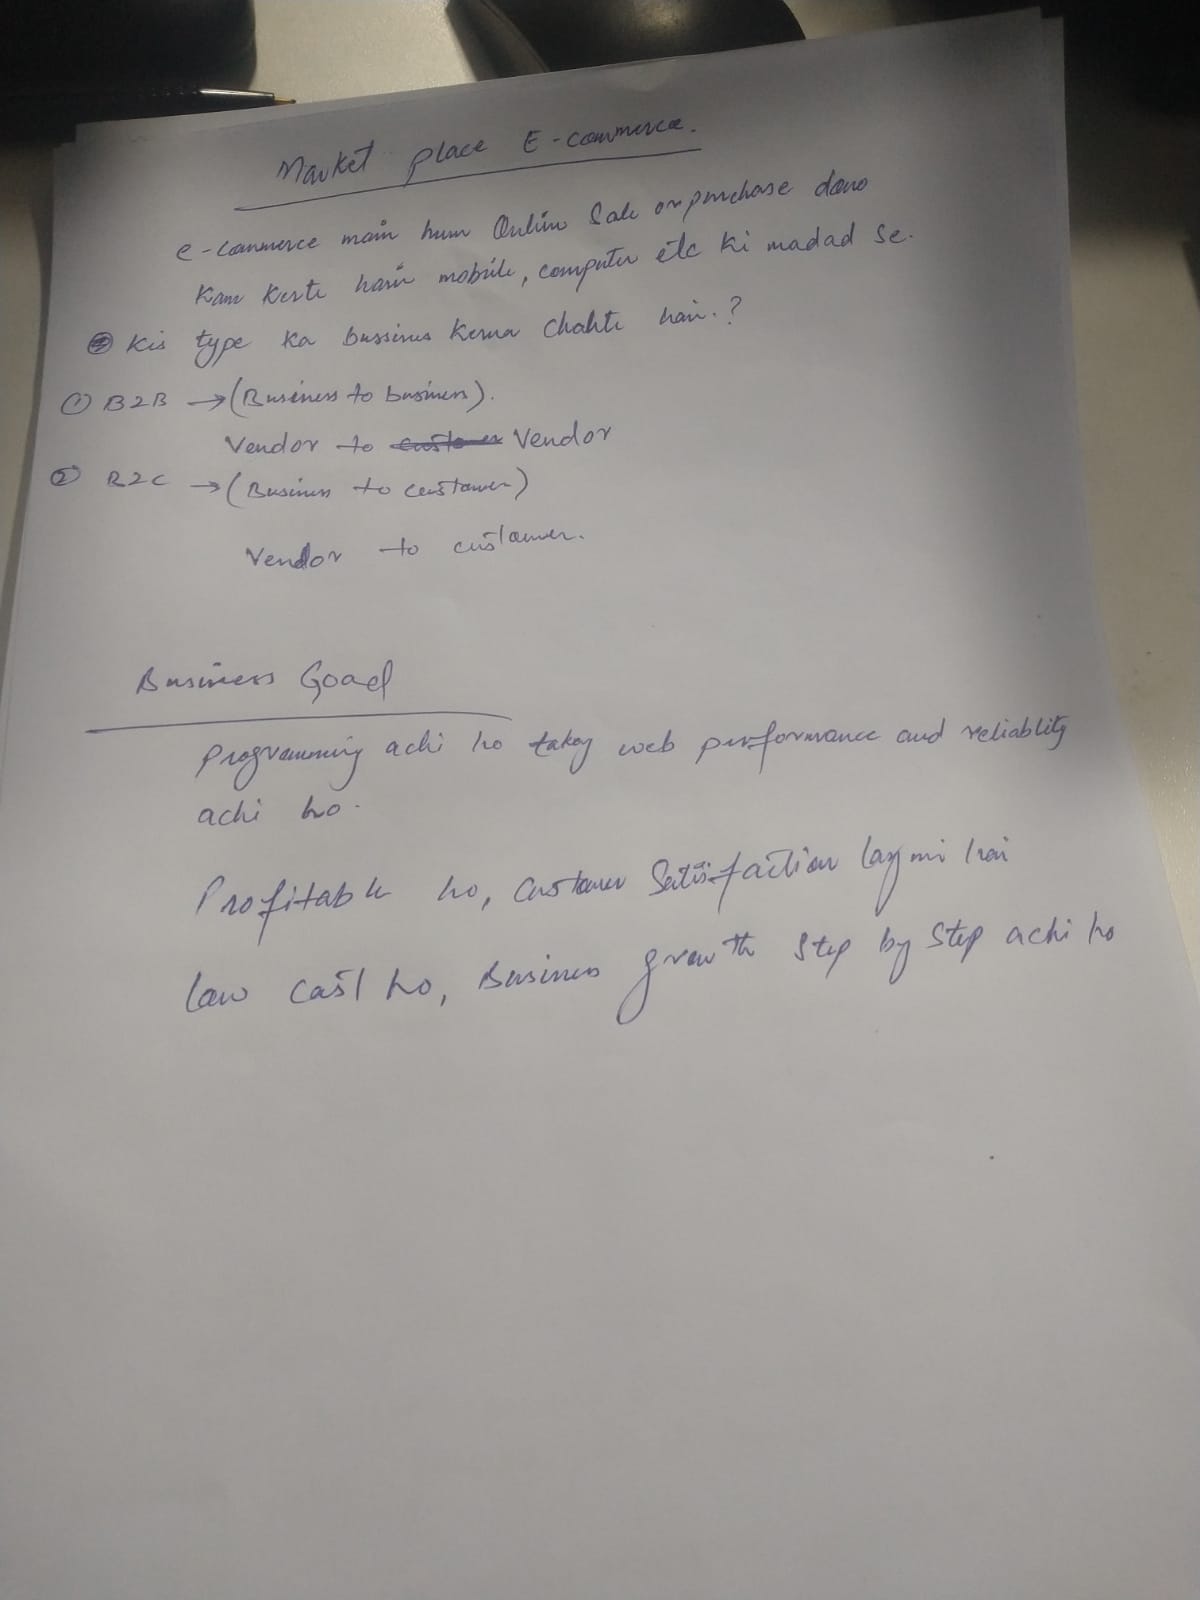 Market place E-commerce.
e-commerce main hum Online Sale or purchase dono
Kam Kerte hain mobile, computer etc Ki madad se.
Kis type Ka bussines Kerna Chahte hain.?
① B2B →(Business to business).
Vendor to customer Vendor
② B2C →(Business to customer)
Vendor to customer.
Business Goael
Programming achi ho takey web performance and reliablity
achi ho.
Profitable ho, Customer Satisfaction lazmi hai
low cost ho, Business growth Step by Step achi ho